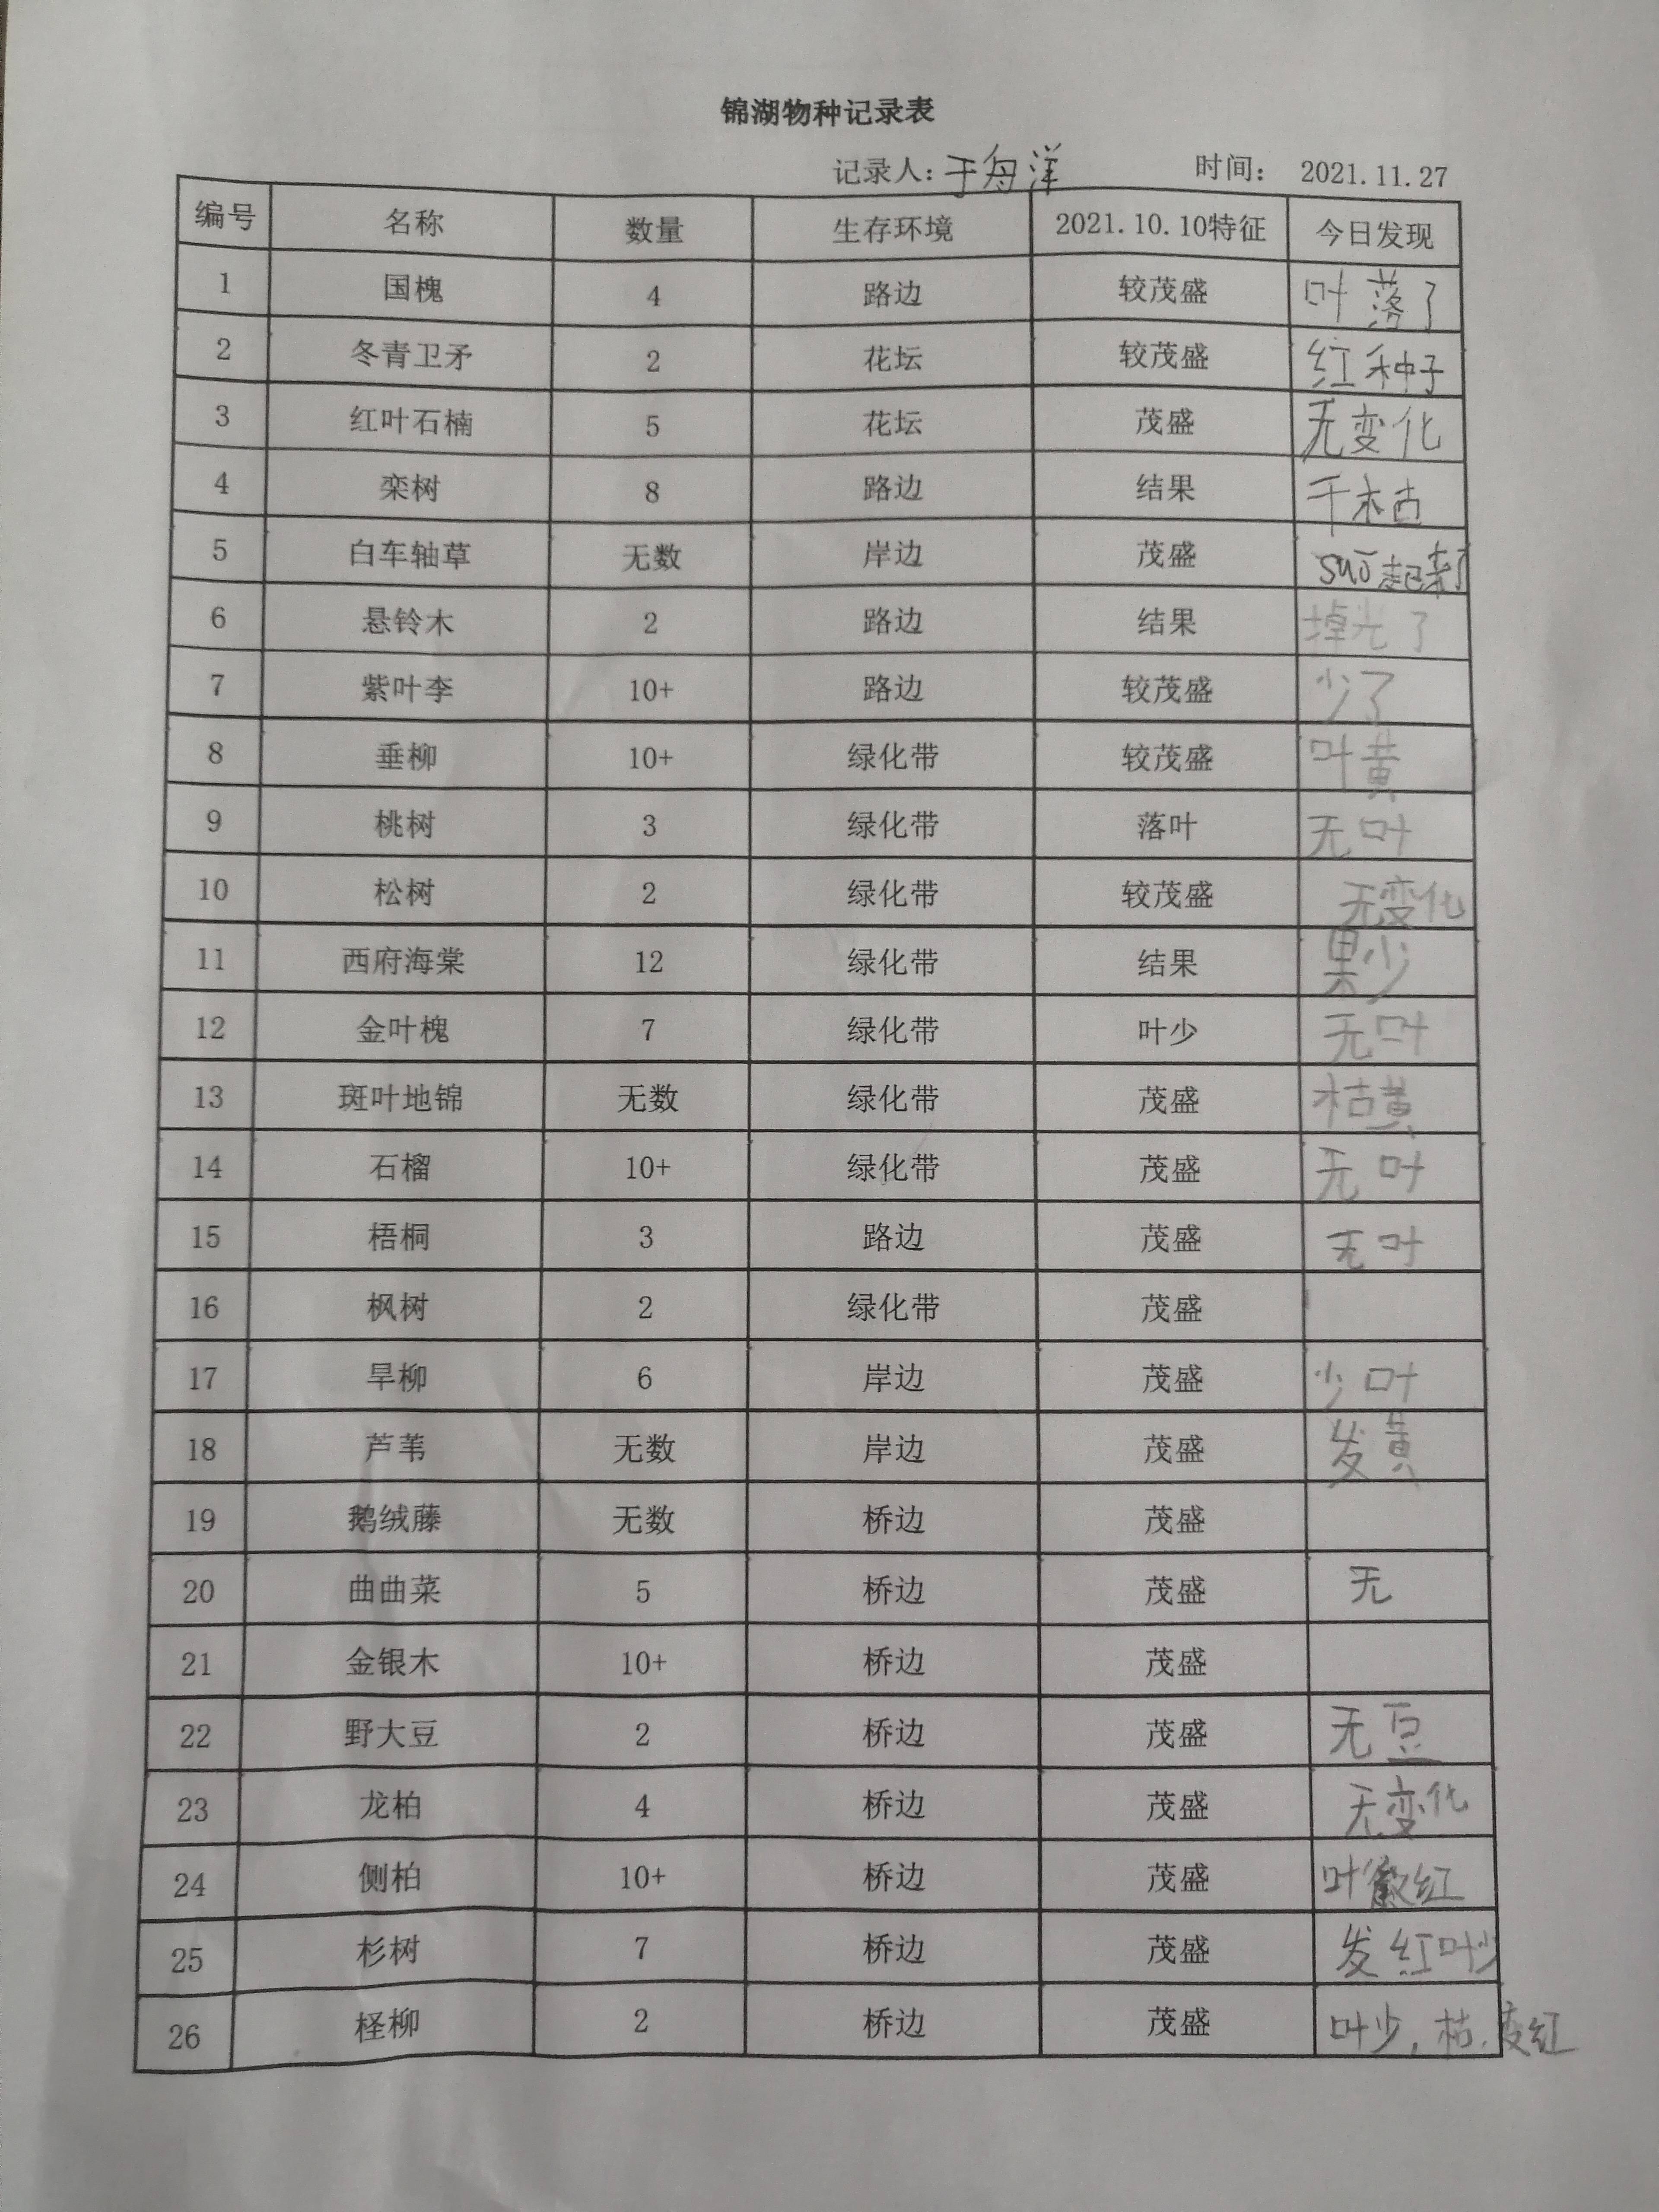 锦湖物种记录表
记录人：于舟洋 时间： 2021.11.27
编号 名称 数量 生存环境 2021.10.10特征 今日发现
1 国槐 4 路边 较茂盛 叶落了
2 冬青卫矛 2 花坛 较茂盛 红种子
3 红叶石楠 5 花坛 茂盛 无变化
4 栾树 8 路边 结果 干枯
5 白车轴草 无数 岸边 茂盛 suō起来了
6 悬铃木 2 路边 结果 掉光了
7 紫叶李 10+ 路边 较茂盛 少了
8 垂柳 10+ 绿化带 较茂盛 叶黄
9 桃树 3 绿化带 落叶 无叶
10 松树 2 绿化带 较茂盛 无变化
11 西府海棠 12 绿化带 结果 果少
12 金叶槐 7 绿化带 叶少 无叶
13 斑叶地锦 无数 绿化带 茂盛 枯黄
14 石榴 10+ 绿化带 茂盛 无叶
15 梧桐 3 路边 茂盛 无叶
16 枫树 2 绿化带 茂盛
17 旱柳 6 岸边 茂盛 少叶
18 芦苇 无数 岸边 茂盛 发黄
19 鹅绒藤 无数 桥边 茂盛
20 曲曲菜 5 桥边 茂盛 无
21 金银木 10+ 桥边 茂盛
22 野大豆 2 桥边 茂盛 无豆
23 龙柏 4 桥边 茂盛 无变化
24 侧柏 10+ 桥边 茂盛 叶微红
25 杉树 7 桥边 茂盛 发红叶少
26 柽柳 2 桥边 茂盛 叶少，枯，变红